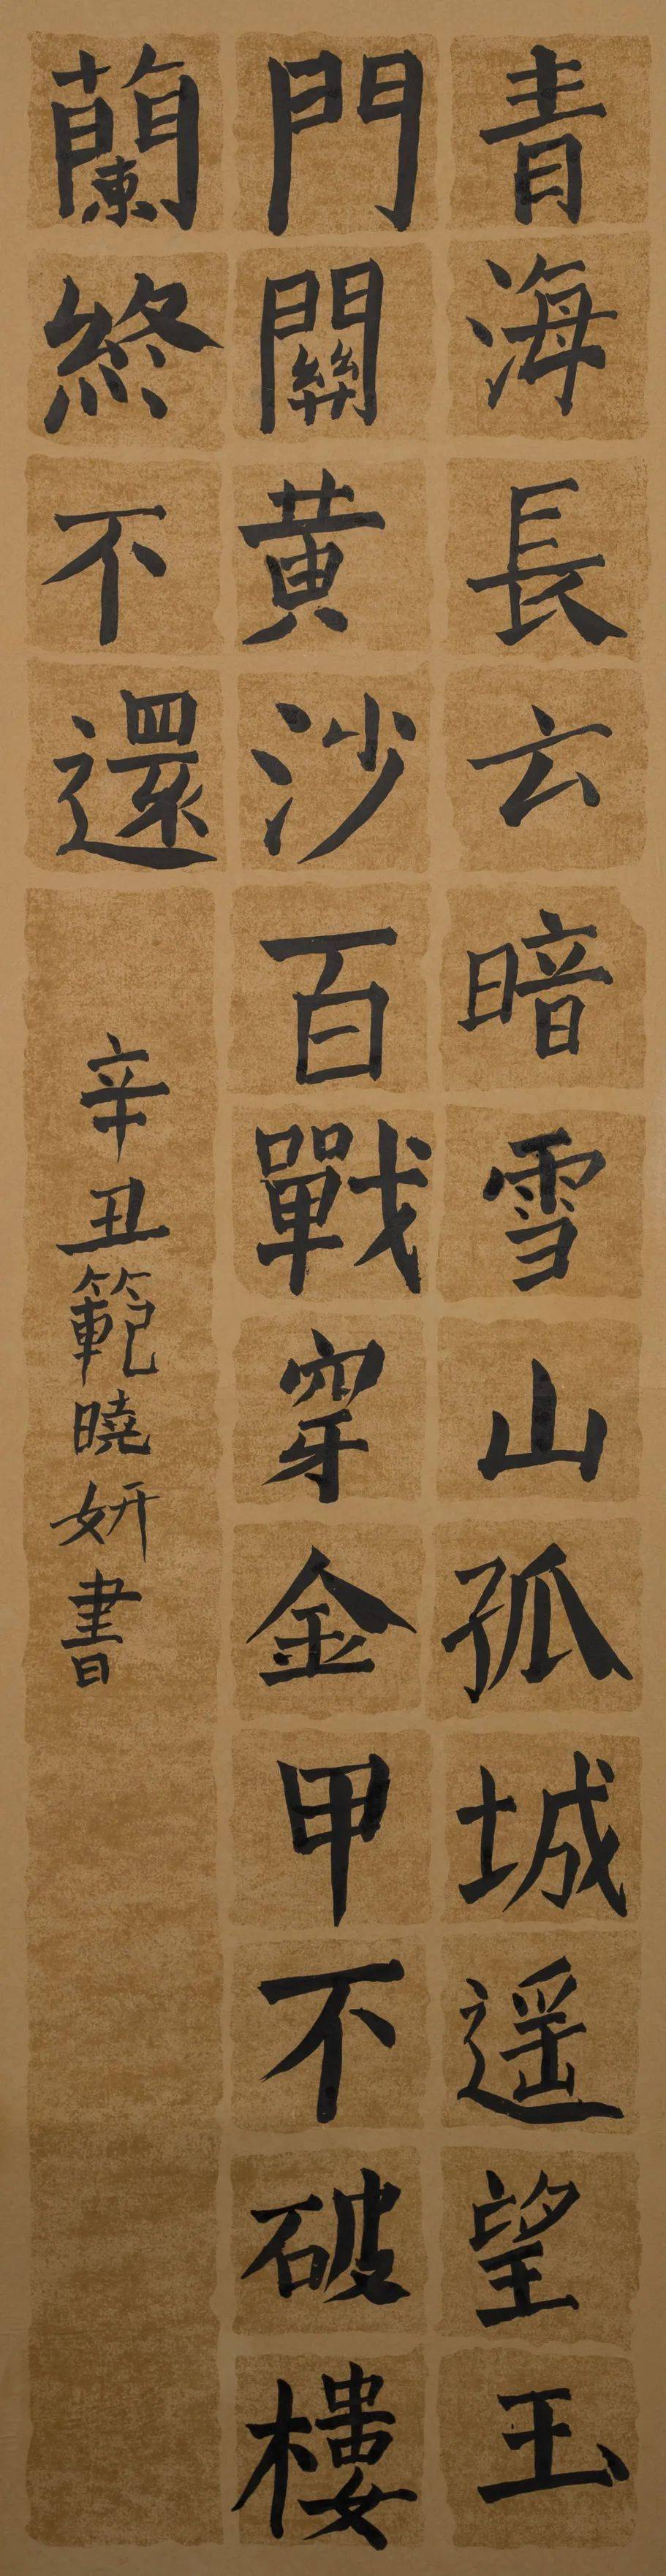 青海長云暗雪山孤城遥望玉
門關黄沙百戰穿金甲不破樓
蘭終不還
辛丑範曉妍書